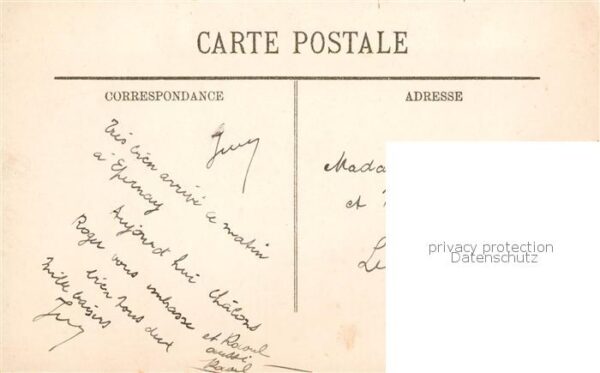 CARTE POSTALE
CORRESPONDANCE
ADRESSE
Très bien arrivé ce matin
à Epernay
Aujourd'hui Châlons
Roger vous embrasse
bien tous deux
Mille baisers
et Raoul
aussi
Raoul
Mada
et
privacy protection
Datenschutz